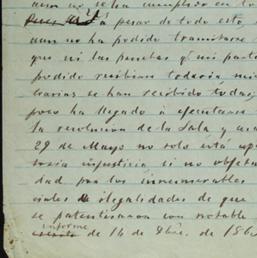 aun no se ha cumplido en lo
á pesar de todo esto,
aun no ha podido tramitarse
que ni las pruebas q̃ mi parte
podido recibirse todavía, mien
trarias se han recibido todas;
pero ha llegado á ejecutarse
la resolucion de la Sala, y aun
29 de Mayo no solo está ape
toria injusticia si no objeta
dad por los innumerables
ciales é ilegalidades de que
se patentisaron con notable
informe
de 14 de Dbre. de 186